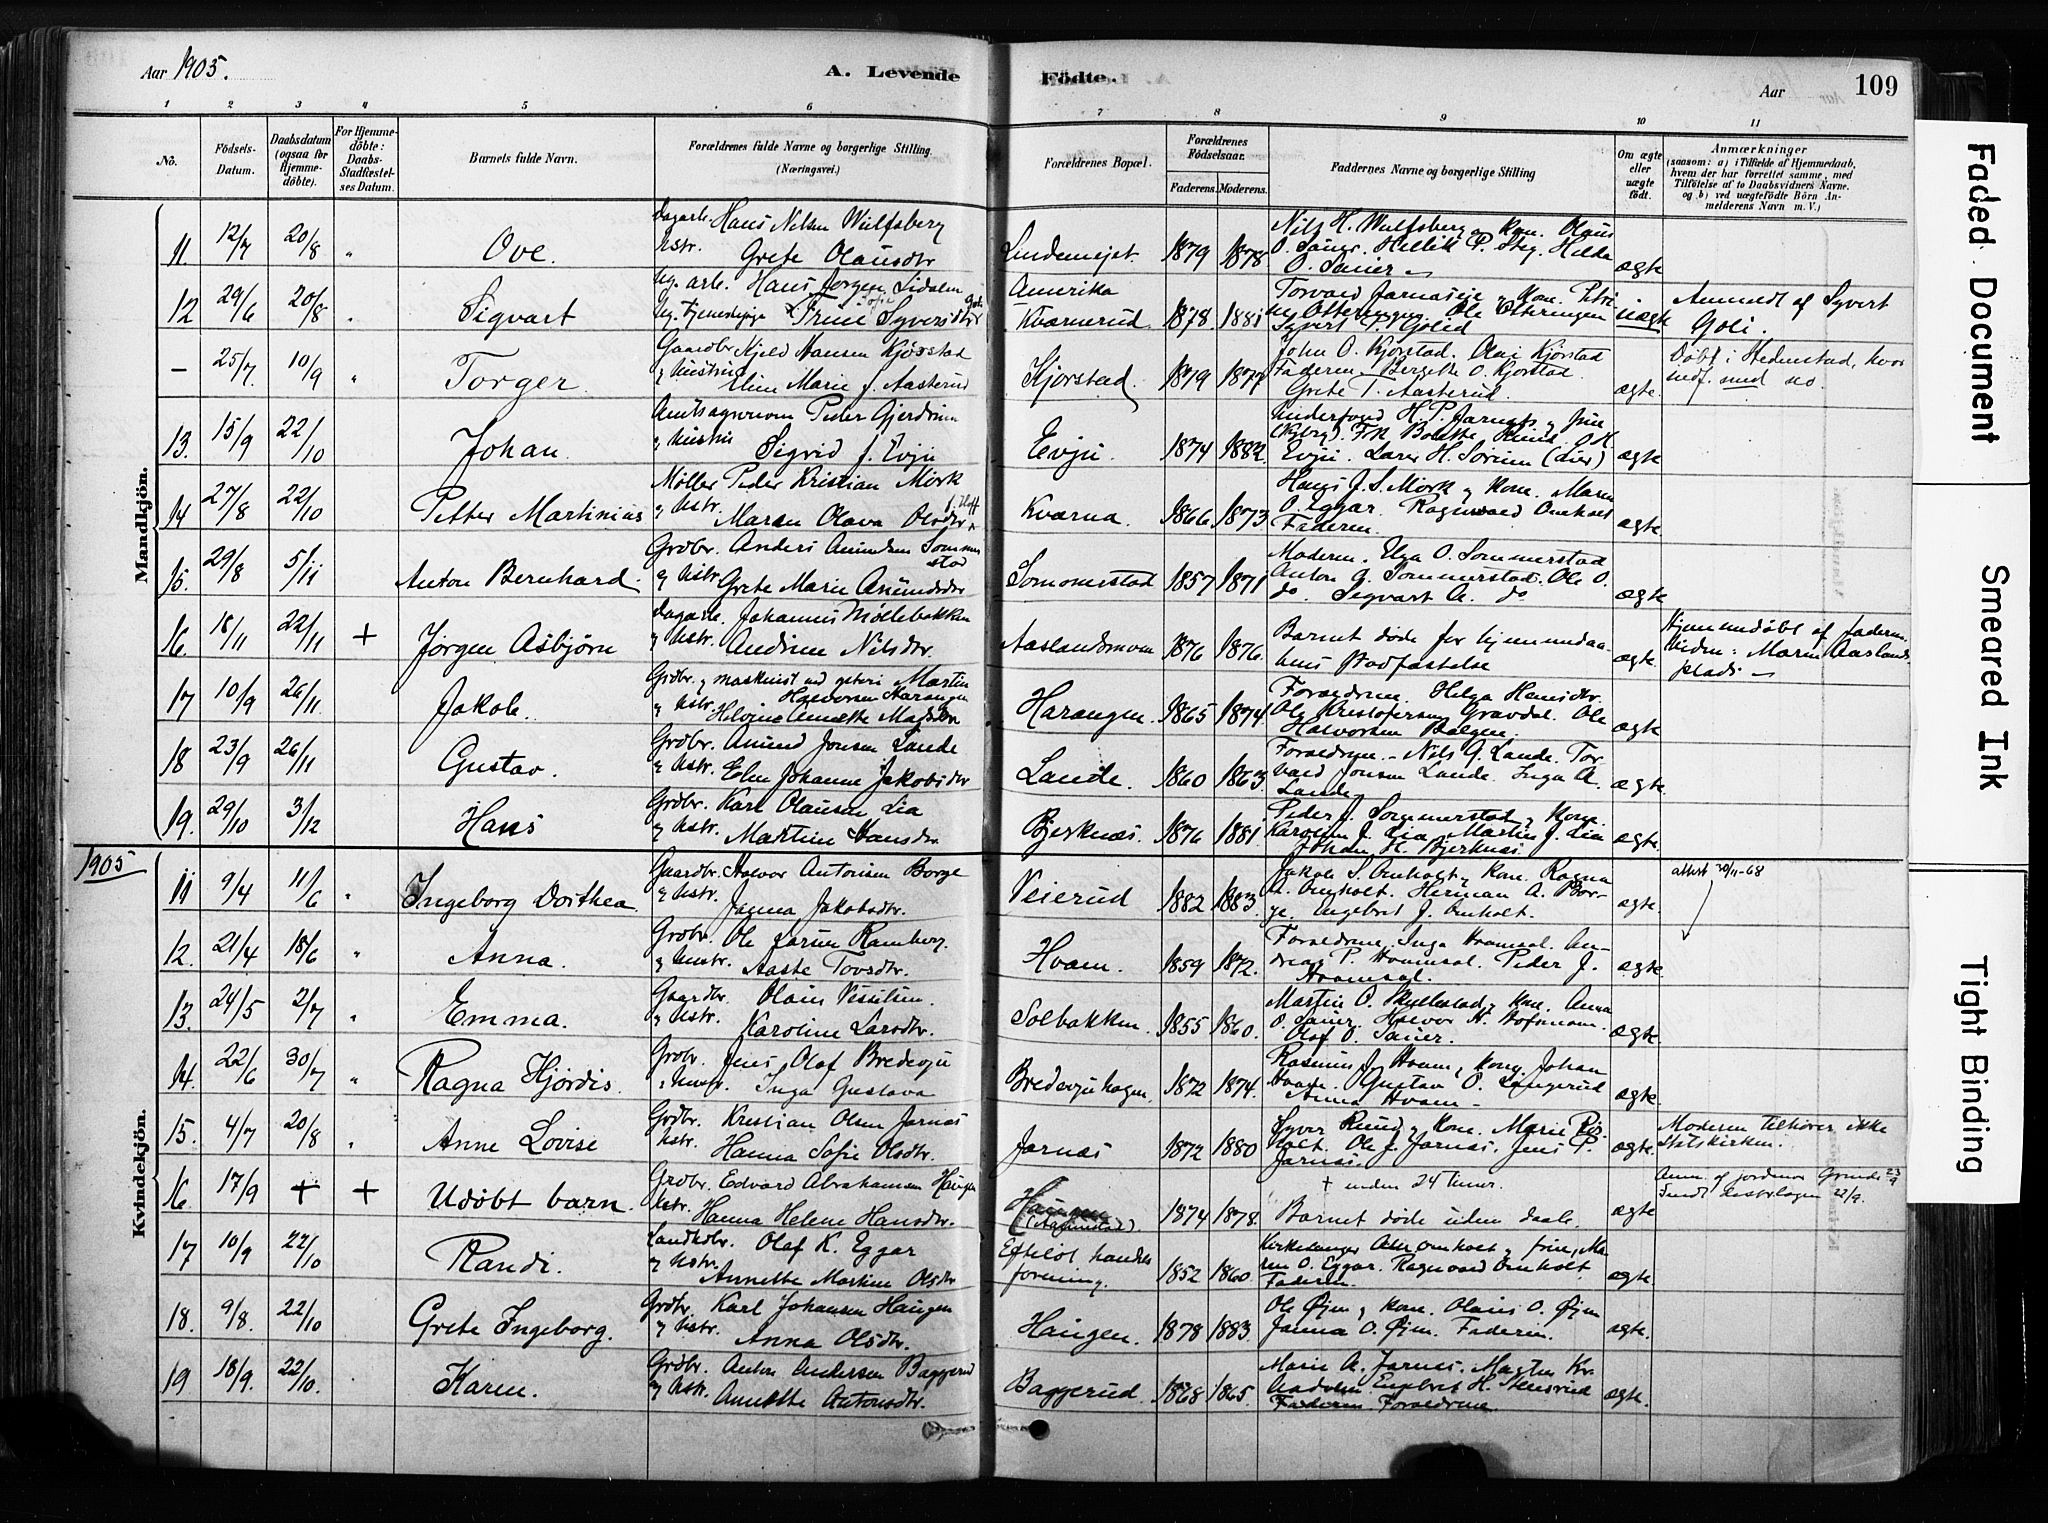 Aar 1905.
A. Levende
Födte.
Aar
109
1 2 3 4 5 6 7 8 9 10 11
No.
Födsels-
Datum.
Daabsdatum
(ogsaa for
Hjemme-
döbte).
For Hjemme-
döbte:
Daabs-
Stadfæstel-
ses Datum.
Barnets fulde Navn.
Forældrenes fulde Navne og borgerlige Stilling.
(Næringsvei.)
Forældrenes Bopæl.
Forældrenes
Födselsaar.
Faderens. Moderens.
Faddernes Navne og borgerlige Stilling
Om ægte
eller
uægte
födt.
Anmærkninger
(saasom: a) i Tilfælde af Hjemmedaab,
hvem der har forrettet samme, med
Tilföielse af to Daabsvidners Navne.
og b) ved uægtefödte Börn An-
melderens Navn m. V.)
Mandkjön.
11. 12/7 20/8 " Ove. Dagarb. Hans Nilsen Wulfsberg
Kstr. Grete Olausdtr
1879 1878 Nils H. Wulfsberg kone. Olaus
O. Sauer. Hellik P. Steg. Helka
O. Sauer ægte
12 29/6 20/8 " Sigvart Ug. arb. Hans Jørgen Lidalen
Ug. Tjenestepige Trine Syversdtr Goli
Amerika
Kværnerud 1878 1881 Torvald Jarnæseie kone. Petri
Otteringen. Ole Otteringen
Syvert T. Golid uægte Anmeldt af Syvert
Goli.
– 25/7. 10/9 " Torger. Gaardbr Kjeld Hansen Kjørstad
Hustru Eline Marie f. Aasterud
Kjørstad. 1879 1877 John O. Kjørstad. Olai Kjørstad
Faderen. Bergette O. Kjørstad.
Grete T. Aasterud. ægte. Døbt i Hedenstad, hvor
indf. med no.
13. 15/9 22/10 Johan. Peder Gjerdrum
y Hustru Sigrid f. Evju
Evju. 1874 1882. H. P. Jarngs. y frue
Frk Bolette O. H.
Evju. Lars H. Sørum (Lier) ægte
14 27/8 22/10 Petter Martinius Møller Peder Kristian Mørk
y Kstr. Maren Olava Olsdtr f. Hoff
Kværna. 1866 1873 Hans J. S. Mørk y kone. Maren
O. Eggar. Ragnvald Omholt
Faderen. ægte
15. 29/8 5/11 Anton Bernhard. Grdbr. Anders Amundsen Sommer
stad
y Kstr. Grete Marie Amundsdtr
Sommerstad 1857 1871 Moderen. Olga O. Sommerstad
Anton A. Sommerstad. Ole O.
do. Segvart A. do ægte
16. 18/11 22/11 + Jørgen Asbjørn Dagarb. Johannes Møllebakken
y Kstr. Andrine Nilsdtr.
Aaslandsmoen 1876 1876. Barnet døde før hjemmedaa-
bens stadfæstelse ægte. Hjemmedøbt af faderen.
Vidne: Maren Aasland-
plads
17 10/9 26/11. Jakob. Grdbr. y maskinist ved gæteri Martin
Halvorsen Harangen
y Kstr. Helvine Annette
Harangen. 1865 1874. Forældrene, Helga Hansdtr.
Ole Kristofersen Gravdal. Ole
Halvorsen Bølgen. ægte
18 23/9 26/11 Gustav. Grdbr. Amund Jonsen Lande
y Kstr. Johanne Jakobsdtr
Lande. 1860 1863. Forældrene.- Nils G. Lande. Tor-
vald Jonsen Lande. Inga A.
Lande ægte.
19. 29/10 3/12 Hans Grdbr. Karl Olausen Lia
y Kstr. Martine Hansdtr.
Bjerknæs. 1876 1881 Peder J. Sommerstad y kone.
Karoline J. Lia Martin J. Lia
Johan H. Bjerknæs. ægte.
1905
Kvindekjön.
11 9/4 11/6 " Ingeborg Dorthea. Gaardbr. Halvor Antonsen Borge
y Kstr. Jagina Jakobsdtr.
Veierud 1882 1883. Jakob S. Omholt y kone. Ragna
A. Omholt. Herman A. Bor-
ge. Engebret J. Omholt. ægte. attest 30/11-68
12. 21/4 18/6 " Anna. Grdbr. Ole Larsen Ramberg.
y Kustr. Aaste Tovsdtr.
Hvam. 1859 1872. Forældrene, Inga Hvamsal. An-
dreas P. Hvamsal. Peder J.
Hvamsal. ægte.
13. 24/5 2/7 " Emma. Gaardbr. Olaus
y Kstr. Karoline Larsdtr.
Solbakken. 1855 1860. Martin O. Skjellestad y kone. Anna
O. Sauer. Halvor H. Hofsmoen.
Olaf O. Sauer. ægte
14. 22/6 30/7 " Ragna Hjørdis. Grdbr. Jens Olaf Bredesju
y Inga Gustava
Bredesjuhagen. 1872 1874. Rasmus J. Hvam, kone. Johan
Haase. Gustav O. Langerud
Anna Hvam – ægte.
15. 4/7 20/8 " Anne Lovise Grdbr. Kristian Olsen Jarnæs
Kstr. Hanna Sofie Olsdtr.
Jarnæs 1872 1880 Syver Ruud y kone. Marie Røs-
holt. Ole J. Jarnæs. Jens P.
Jarnæs. ægte. Moderen tilhører ikke
statskirken.
16 17/9 + + Udøbt barn. Grdbr. Edvard Abrahamsen Haugen
Kstr. Hanna Helene Hansdtr.
1874 1878. + under 24 timer.
Barnet døde uden daab. ægte Anm. af jordmor Grinde 23/9
22/9.
17 10/9 22/10 Randi. Landhdbr. Olaf K. Eggar
y Kstr. Annette Martine Olsdtr
Efteløt handels
forening. 1852 1860. Kirkesanger Omholt y frue, Ma-
ren O. Eggar. Ragnvald Omholt.
Faderen. ægte.
18. 9/8. 22/10 Grete Ingeborg. Grdbr. Karl Johansen Haugen
y Kstr. Anna Olsdtr.
Haugen. 1878 1883. Ole Øjen y kone. Olaus O. Øjen
Janna O. Øjen. Faderen. ægte.
19 18/9. 22/10. Karen. Grdbr. Anton Andersen Baggerud
y Kstr. Annette Antonsdtr.
Baggerud. 1868 1865. Marie A. Jarnæs. Magten Kr.
Engebret H. Stensrud
Forældrene. ægte.
Faded Document
Smeared Ink
Tight Binding